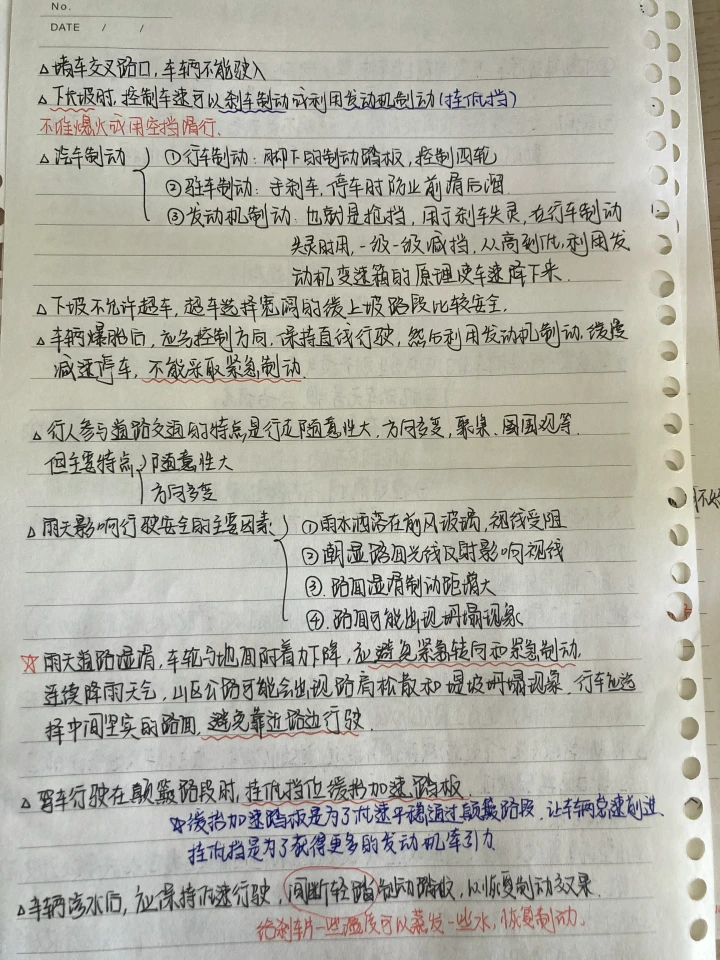 No.
DATE / /
△堵车交叉路口，车辆不能驶入
△下长坡时，控制车速可以刹车制动或利用发动机制动(挂低挡)
不准熄火或用空挡滑行.
△汽车制动 ①行车制动：脚下的制动踏板，控制四轮
②驻车制动：手刹车，停车时防止前滑后溜
③发动机制动：也就是抢挡，用于刹车失灵，在行车制动
失灵时用，一级一级减挡，从高到低，利用发
动机变速箱的原理使车速降下来.
△下坡不允许超车，超车选择宽阔的缓上坡路段比较安全.
△车辆爆胎后，应先控制方向，保持直线行驶，然后利用发动机制动，缓慢
减速停车，不能采取紧急制动.
△行人参与道路交通的特点是行走随意性大，方向多变，聚集、围观等.
但主要特点 随意性大
方向多变
△雨天影响行驶安全的主要因素 ①雨水洒落在前风玻璃，视线受阻
②潮湿路面光线反射影响视线
③.路面湿滑制动距增大
④.路面可能出现坍塌现象
☆雨天道路湿滑，车轮与地面附着力下降，应避免紧急转向和紧急制动.
连续降雨天气，山区公路可能会出现路肩松散和堤坡坍塌现象，行车应选
择中间坚实的路面，避免靠近路边行驶.
△驾车行驶在颠簸路段时，挂低挡位缓抬加速踏板.
☆缓抬加速踏板是为了低速平稳通过颠簸路段，让车辆怠速前进.
挂低挡是为了获得更多的发动机牵引力.
△车辆涉水后，应保持低速行驶，间断轻踏制动踏板，以恢复制动效果.
给刹车片一些温度可以蒸发一些水，恢复制动.